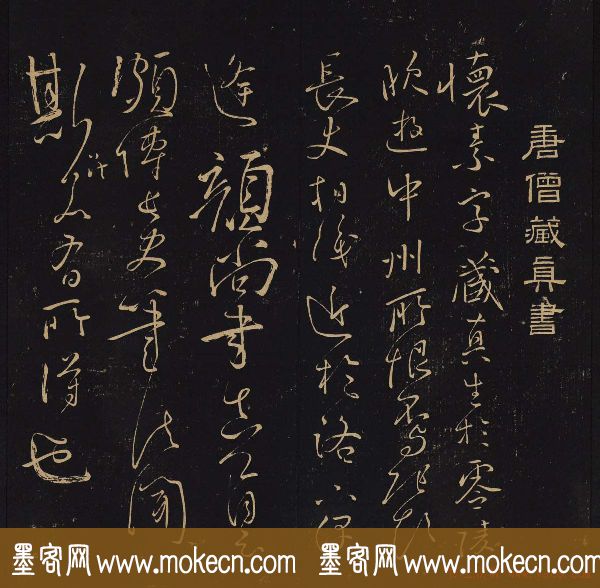 唐僧藏真書
懷素字藏真生於零陵
晚遊中州所恨不與張顛
長史相識近於洛下偶
逢顏尚書真卿自云
頗傳長史筆法聞
斯八法若有所得也
墨客网 www.mokecn.com 墨客网 www.mokecn.com